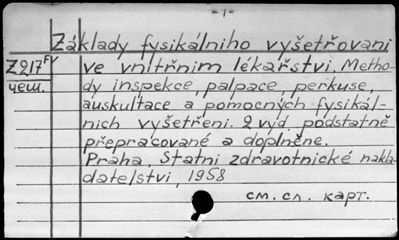 - 1 -
Základy fysikálního vyšetřovani
Z217 FV ve vnitřnim lékařství. Metho-
чеш. dy inspekce, palpace, perkuse,
auskultace a pomocných fysikál-
nich vyšetřeni. 2 vyd. podstatně
přepracované a doplněne.
Praha, Statni zdravotnické nakla-
datelstvi, 1958
см. сл. карт.